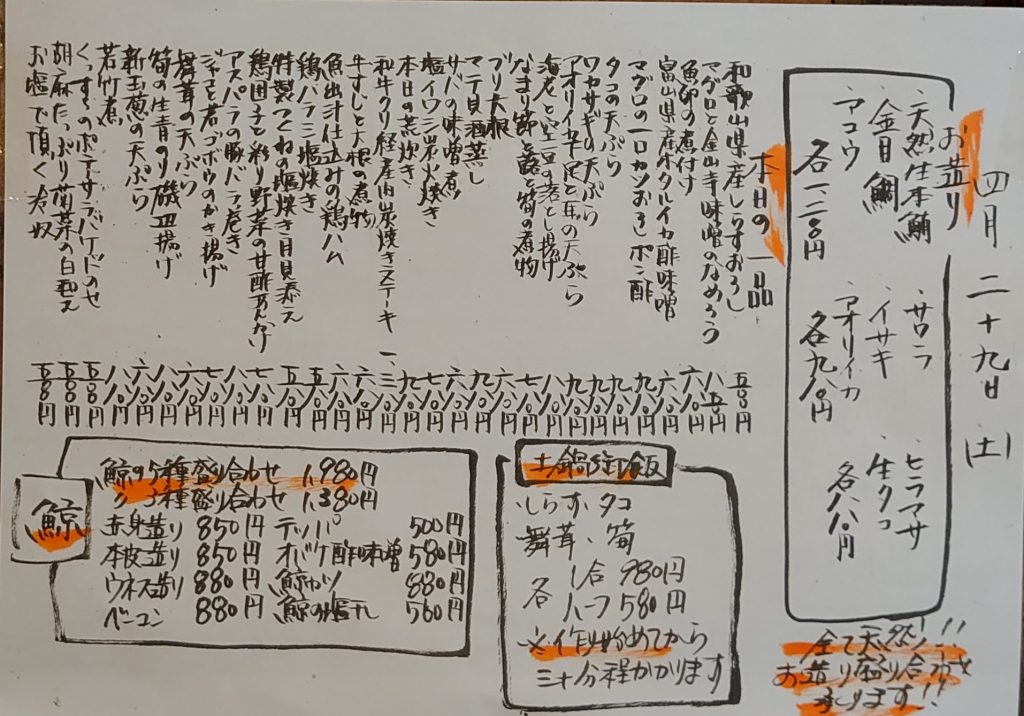 四月二十九日(土)
お造り
・天然生本鮪
・金目鯛
・アコウ
各一、二八〇円
・サワラ
・イサキ
・アオリイカ
各九八〇円
・ヒラマサ
・生タコ
各八八〇円
全て天然!!
お造り盛り合わせ
承ります!!
本日の一品
和歌山県産しらすおろし 五八〇円
マグロと金山寺味噌のなめろう 八五〇円
魚卵の煮付け 六八〇円
富山県産ホタルイカ酢味噌 六八〇円
マグロの一口カツおろしポン酢 八八〇円
タコの天ぷら 九八〇円
ワカサギの天ぷら 九八〇円
アオリイカ足と耳の天ぷら 九八〇円
海老と空豆の落とし揚げ 八八〇円
なまり節と蕗と筍の煮物 六八〇円
ブリ大根 九八〇円
マテ貝酒蒸し 六八〇円
サバの味噌煮 七八〇円
塩イワシ炭火焼き
本日の荒炊き 九八〇円
和牛クリ 経産肉炭焼きステーキ 一、三八〇円
牛すじと大根の煮物 八八〇円
魚出汁仕込みの鶏ハム 六八〇円
鶏ハラミ塩焼き 五八〇円
特製つくねの塩焼き 目貝添え
鶏団子と彩り野菜の甘酢あんかけ 八八〇円
アスパラの豚バラ巻き 八八〇円
ジャコと若ゴボウのかき揚げ 七八〇円
舞茸の天ぷら 六八〇円
筍の生青のり磯辺揚げ 八八〇円
新玉葱の天ぷら 六八〇円
若竹煮 八八〇円
くっすんのポテサラ バゲットのせ 五八〇円
胡麻たっぷり菊菜の白和え 五八〇円
お塩で頂く冷奴 五八〇円
土鍋御飯
しらす、タコ
舞茸、筍
各 1合 980円
ハーフ 580円
※作り始めてから
三十分程かかります
鯨
鯨の5種盛り合わせ 1,980円
〃 3種盛り合わせ 1,380円
赤身造り 850円 テッパ 500円
本皮造り 850円 オバケ酢味噌 580円
ウネス造り 880円 鯨カツ 880円
ベーコン 880円 鯨の塩干 560円